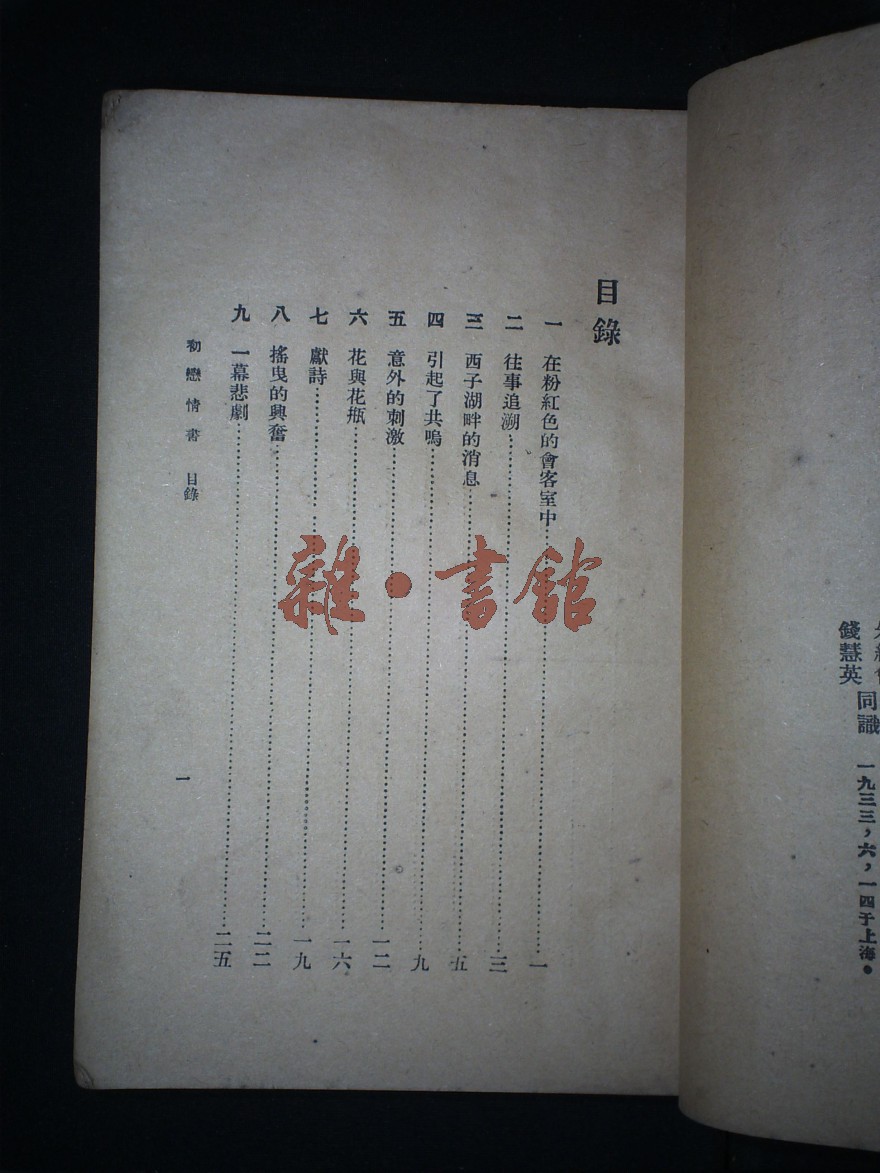 錢慧英
同識 一九三三，六，一四于上海。
目錄
一 在粉紅色的會客室中……一
二 往事追溯……三
三 西子湖畔的消息……五
四 引起了共鳴……九
五 意外的刺激……一二
六 花與花瓶……一六
七 獻詩……一九
八 搖曳的興奮……二二
九 一幕悲劇……二五
初戀情書 目錄
一
雜·書館